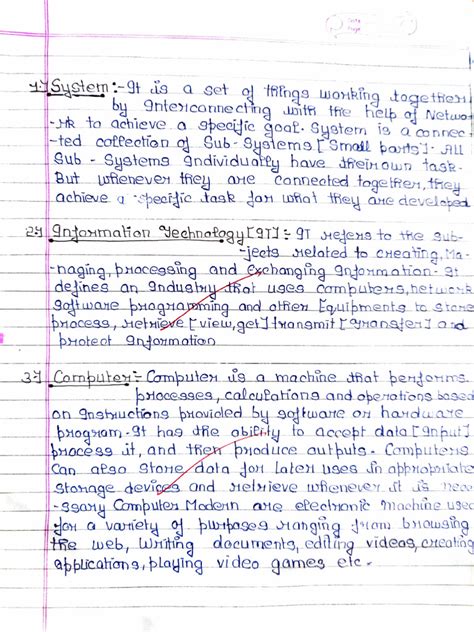 Date
Page
1.} System :- It is a set of things working together
by Interconnecting with the help of Netwo
-rk to achieve a specific goal. System is a connec
-ted collection of Sub-Systems [Small parts]. All
Sub-Systems Individually have their own task.
But whenever they are connected together, they
achieve a specific task for what they are developed
2} Information Technology [IT] :- IT refers to the Sub-
-jects related to creating, Ma-
-naging, processing and exchanging Information. It
defines an Industry that uses computers, network
Software programming and other Equipments to store
process, retrieve [view, get] transmit [transfer] and
protect Information
3} Computer :- Computer is a machine that performs
processes, calculations and operations based
on Instructions provided by software or hardware
program. It has the ability to accept data [Input]
process it, and then produce outputs. Computers
Can also store data for later uses in appropriate
storage devices and retrieve whenever it is nece
-ssary Computer Modern are electronic machine used
for a variety of purposes ranging from browsing
the web, Writing documents, editing videos, creating
applications, playing video games etc.